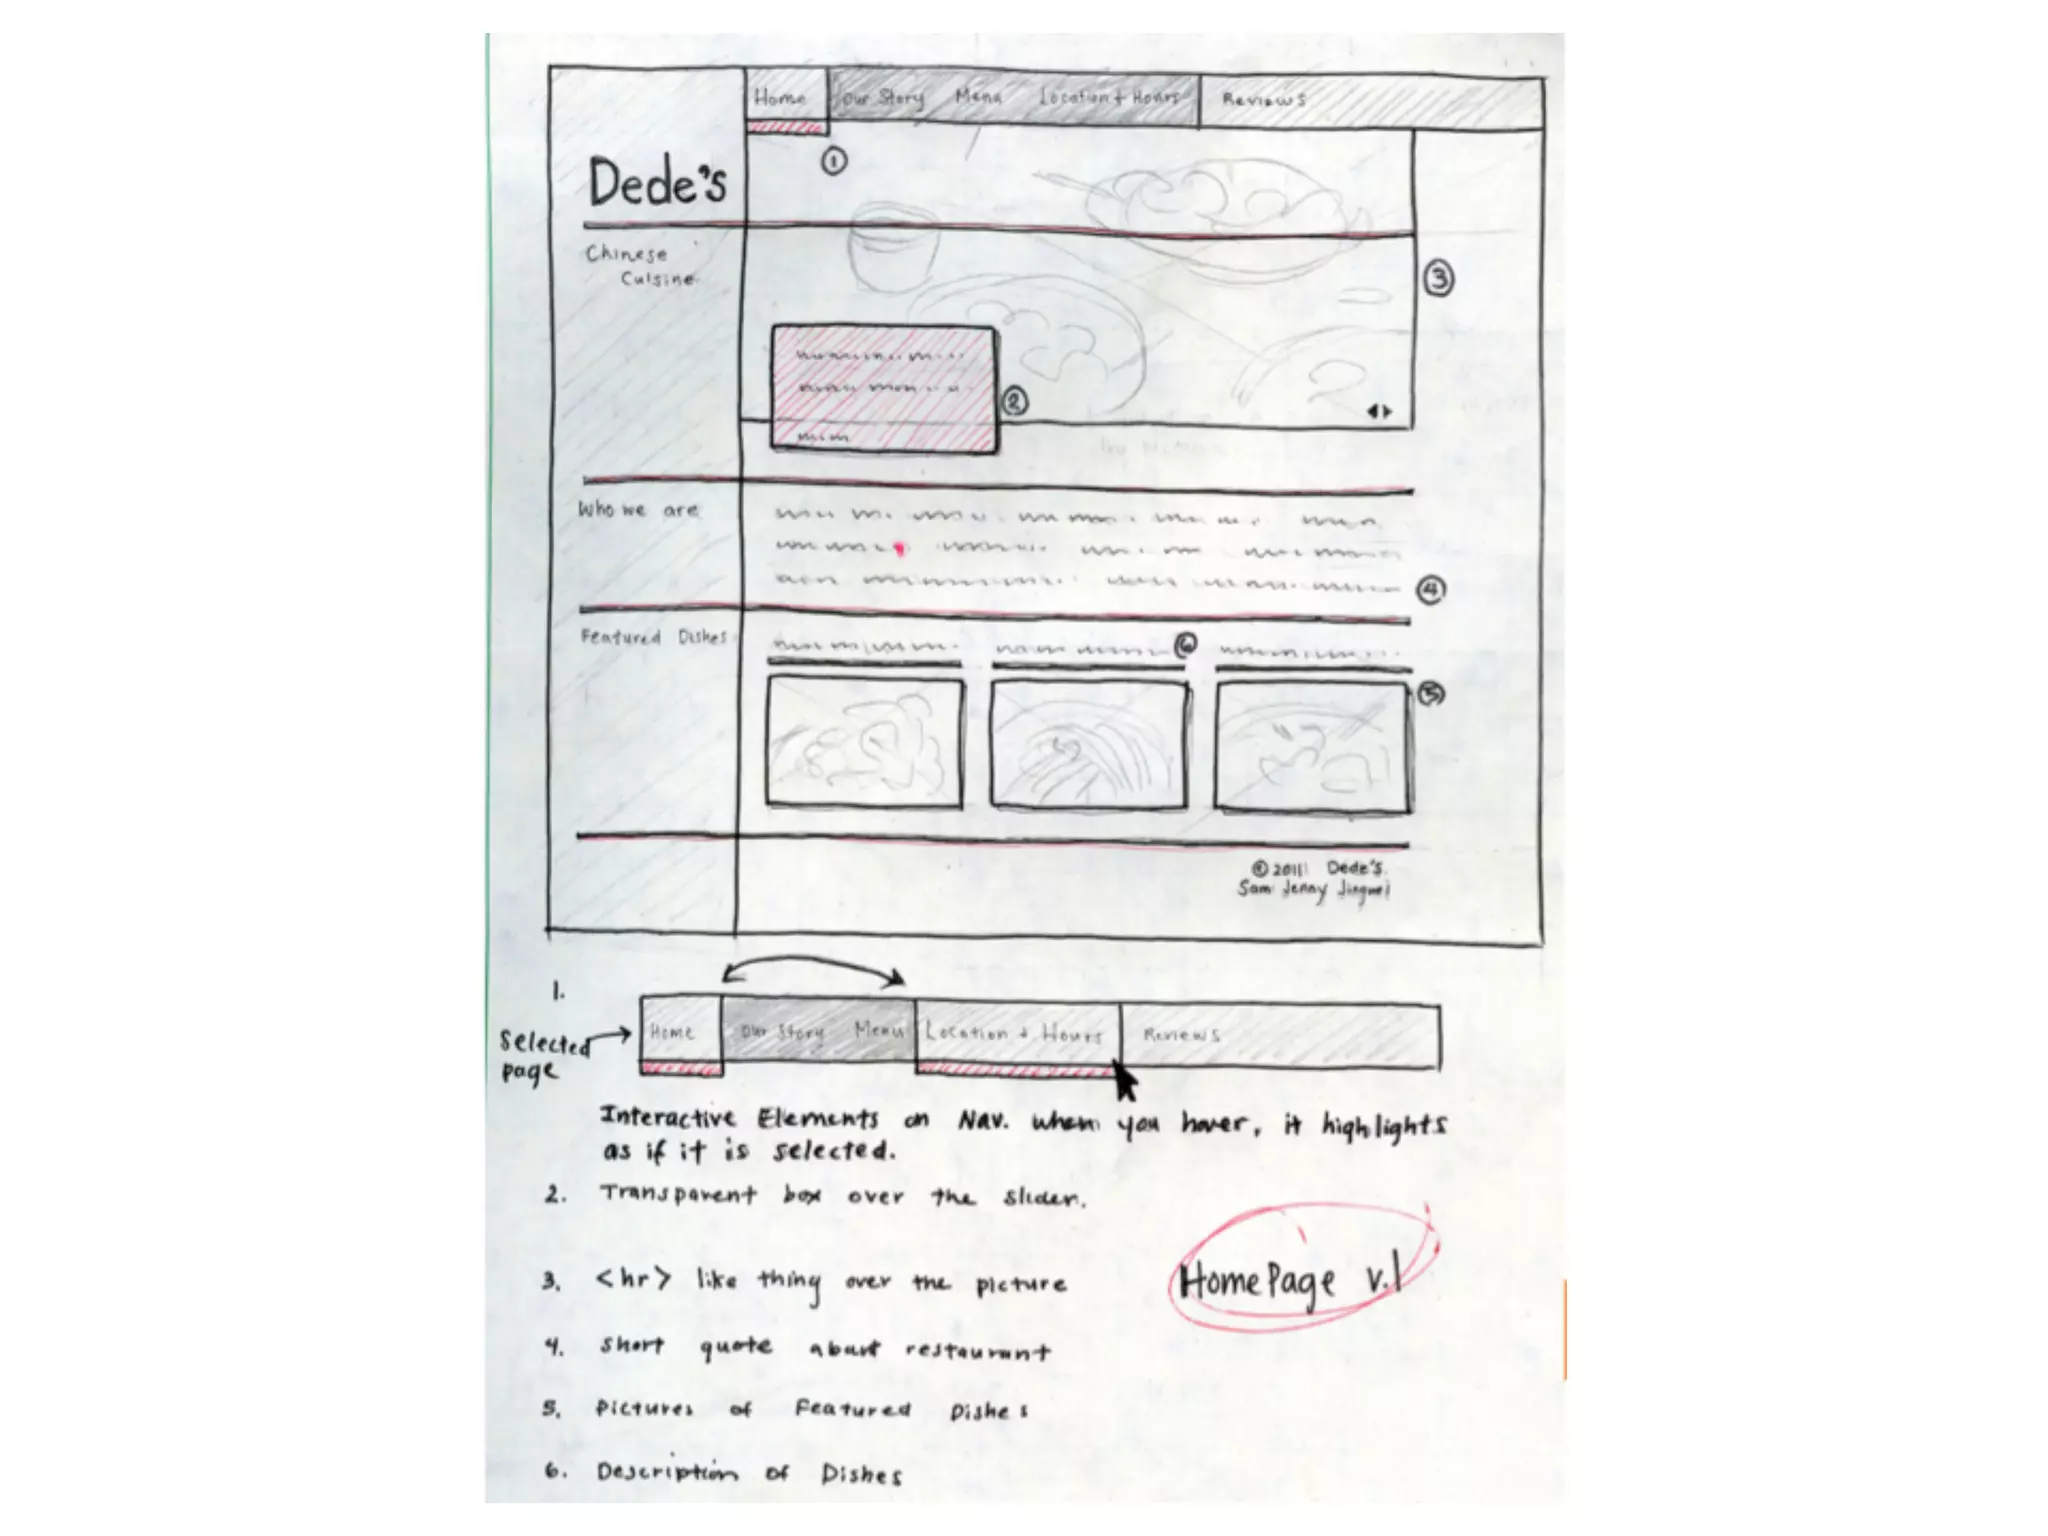 Home Our Story Menu Location + Hours Reviews
1
Dede's
Chinese
Cuisine
3
2
Who we are
4
Featured Dishes
6
5
© 2011 Dede's.
Sam Jenny Jingwei
1.
Selected
page
Home Our Story Menu Location + Hours Reviews
Interactive Elements on Nav. when you hover, it highlights
as if it is selected.
2. Transparent box over the slider.
3. <hr> like thing over the picture
4. Short quote about restaurant
5. Pictures of Featured Dishes
6. Description of Dishes
HomePage v.1